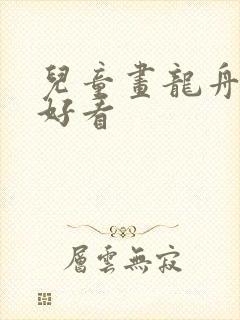 兒童畫龍舟
好看
層雲無寂